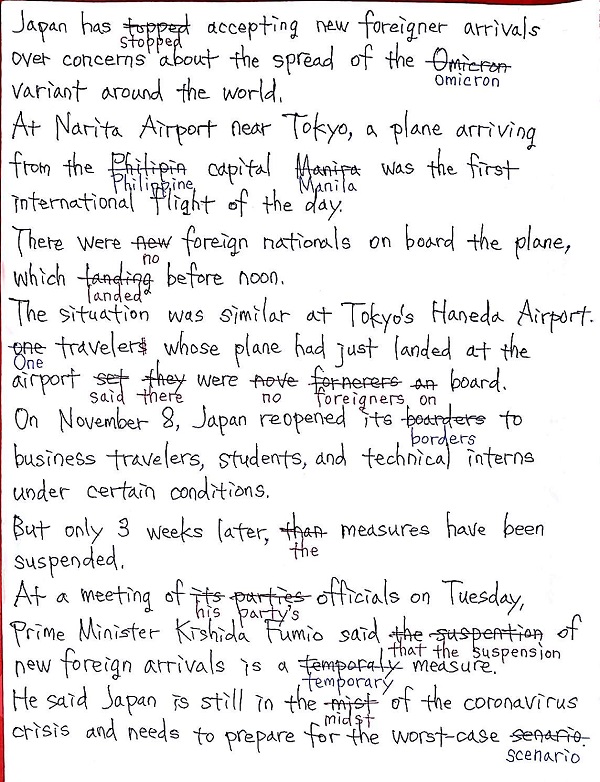 Japan has topped accepting new foreigner arrivals
stopped
over concerns about the spread of the Omicron
omicron
variant around the world.
At Narita Airport near Tokyo, a plane arriving
from the Philipin capital Manira was the first
Philippine Manila
international flight of the day.
There were new foreign nationals on board the plane,
no
which landing before noon.
landed
The situation was similar at Tokyo's Haneda Airport.
one travelers whose plane had just landed at the
One
airport set they were nove fornerers an board.
said there no foreigners on
On November 8, Japan reopened its boarders to
borders
business travelers, students, and technical interns
under certain conditions.
But only 3 weeks later, than measures have been
the
suspended.
At a meeting of its parties officials on Tuesday,
his party's
Prime Minister Kishida Fumio said the suspention of
that the suspension
new foreign arrivals is a temporaly measure.
temporary
He said Japan is still in the mist of the coronavirus
midst
crisis and needs to prepare for the worst-case senario.
scenario